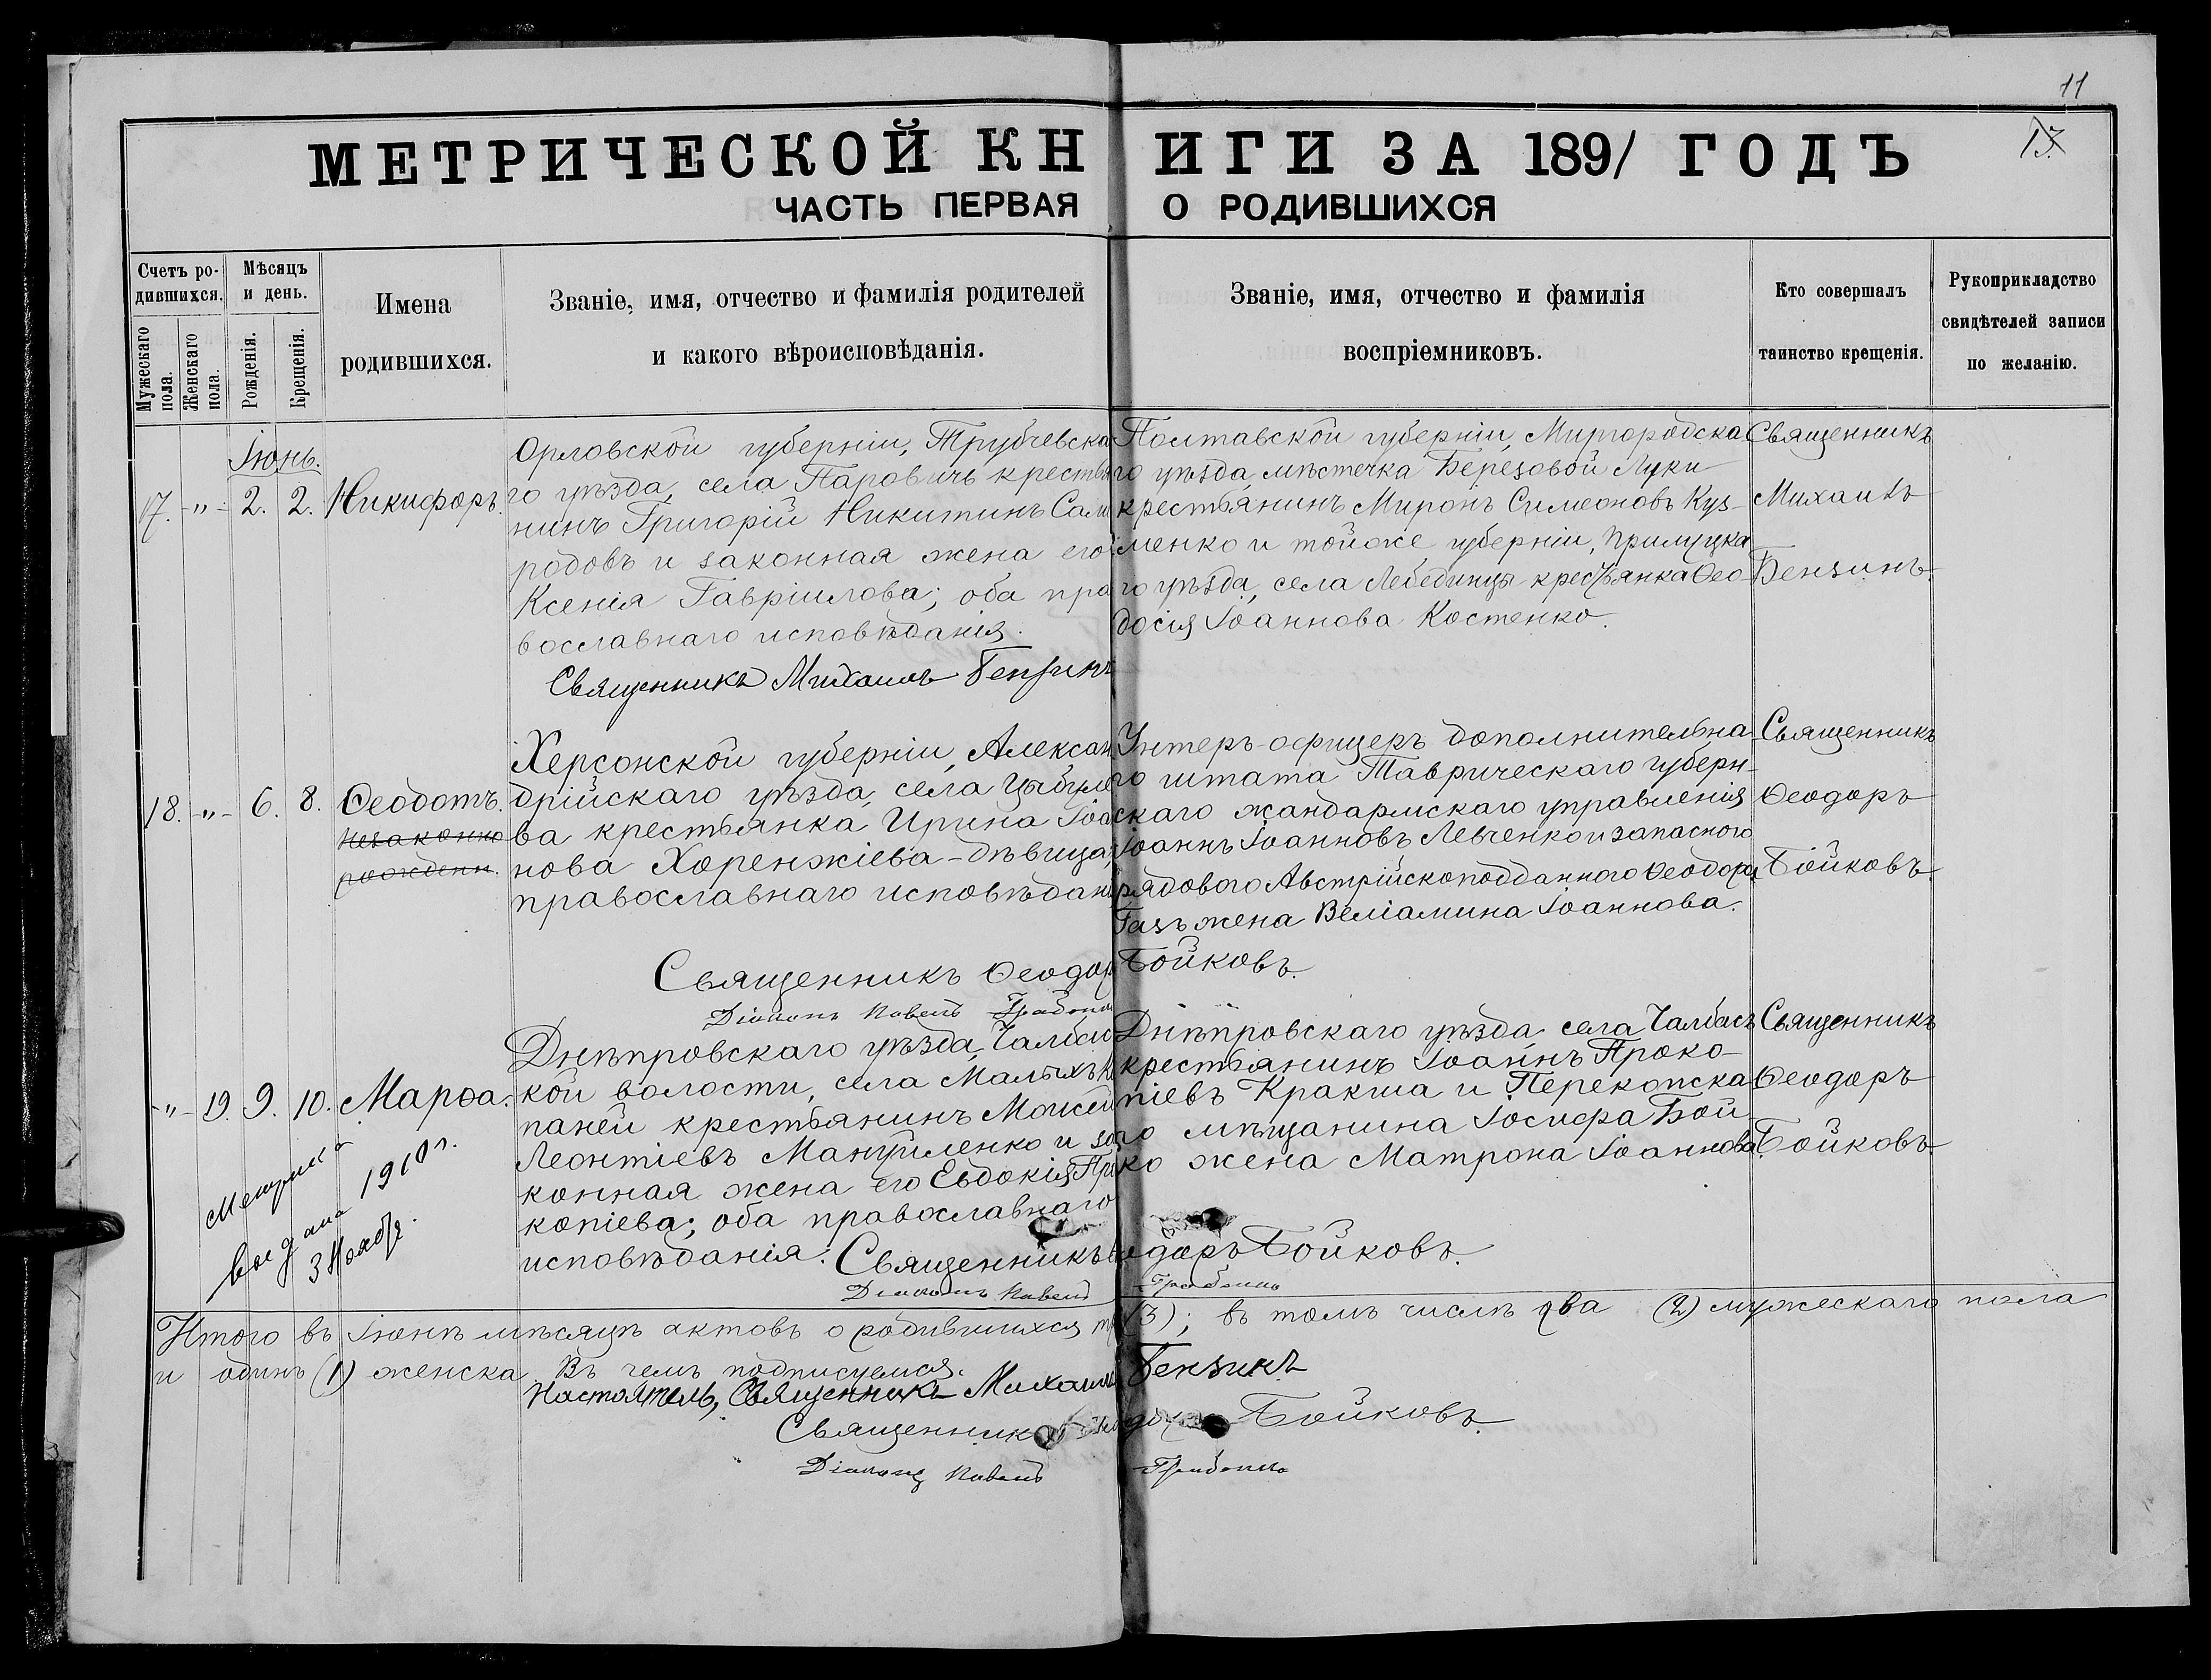 11
МЕТРИЧЕСКОЙ КНИГИ ЗА 1891 ГОДЪ
13.
ЧАСТЬ ПЕРВАЯ О РОДИВШИХСЯ
Счетъ родившихся.
Мужескаго пола.
Женскаго пола.
Мѣсяцъ и день.
Рожденія.
Крещенія.
Имена
родившихся.
Званіе, имя, отчество и фамилія родителей
и какого вѣроисповѣданія.
Званіе, имя, отчество и фамилія
воспріемниковъ.
Кто совершалъ
таинство крещенія.
Рукоприкладство
свидѣтелей записи
по желанію.
Іюнь.
17. -"- 2. 2. Никифоръ.
Орловской губерніи, Трубчевска
го уѣзда, села Паровичь крестья
нинъ Григорій Никитинъ Сали
родовъ и законная жена его
Ксенія Гавріилова; оба пра
вославнаго исповѣданія.
Священникъ Михаилъ Бензинъ
Полтавской губерніи, Миргородска
го уѣзда, мѣстечка Березовой Луки
крестьянинъ Миронъ Симеоновъ Куз-
менко и тойже губерніи, Прилуцка
го уѣзда, села Лебединцы крестьянка Ѳео-
досія Іоаннова Костенко.
Священникъ
Михаилъ
Бензинъ.
18. -"- 6. 8. Ѳеодотъ.
незаконно
рожденн.
Херсонской губерніи, Алексан
дрійскаго уѣзда, села Цыбуле
ва крестьянка Ирина Іоа
нова Хоренжіева - дѣвица,
православнаго исповѣдані
Унтеръ-офицеръ дополнительна-
го штата Таврическаго губерн-
скаго жандармскаго управленія
Іоаннъ Іоанновъ Левченко и запасного
рядового Австрійскоподданного Ѳеодора
Газъ жена Веліамина Іоаннова.
Священникъ
Ѳеодоръ
Бойковъ.
Священникъ Ѳеодоръ Бойковъ.
Діаконъ Павелъ
-"- 19. 9. 10. Марѳа.
Метрика
выдана 1910 г.
3 Ноября.
Днѣпровскаго уѣзда, Чалбас
кой волости, села Малыхъ Ко
паней крестьянинъ Моисей
Леонтіевъ Мануйленко и за
конная жена его Евдокія Про
копіева; оба православнаго
исповѣданія. Священникъ Ѳеодоръ Бойковъ.
Діаконъ Павелъ
Днѣпровскаго уѣзда села Чалбасъ
крестьянинъ Іоаннъ Проко-
піевъ Кракша и Перекопска
го мѣщанина Іосифа Бой
ко жена Матрона Іоаннова.
Священникъ
Ѳеодоръ
Бойковъ.
Итого въ Іюнѣ мѣсяцѣ актовъ о родившихся (3); въ томъ числѣ два (2) мужескаго пола
и одинъ (1) женска. Въ чемъ подписуемся.
Настоятель, Священникъ Михаилъ Бензинъ
Священникъ Ѳеодоръ Бойковъ.
Діаконъ Павелъ